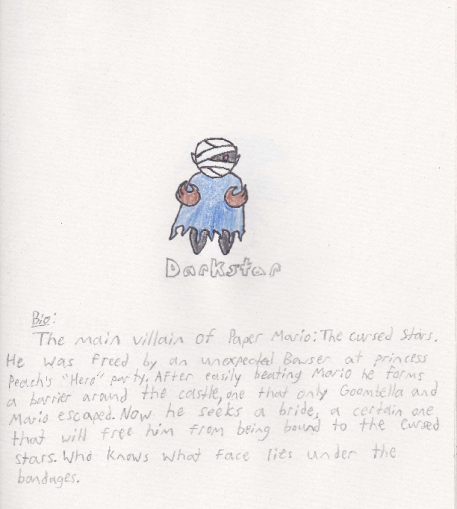 Darkstar
Bio:
The main villain of Paper Mario: The Cursed Stars.
He was freed by an unexpected Bowser at princess
Peach's "Hero" party. After easily beating Mario he forms
a barrier around the castle, one that only Goombella and
Mario escaped. Now he seeks a bride, a certain one
that will free him from being bound to the cursed
stars. Who knows what face lies under the
bandages.